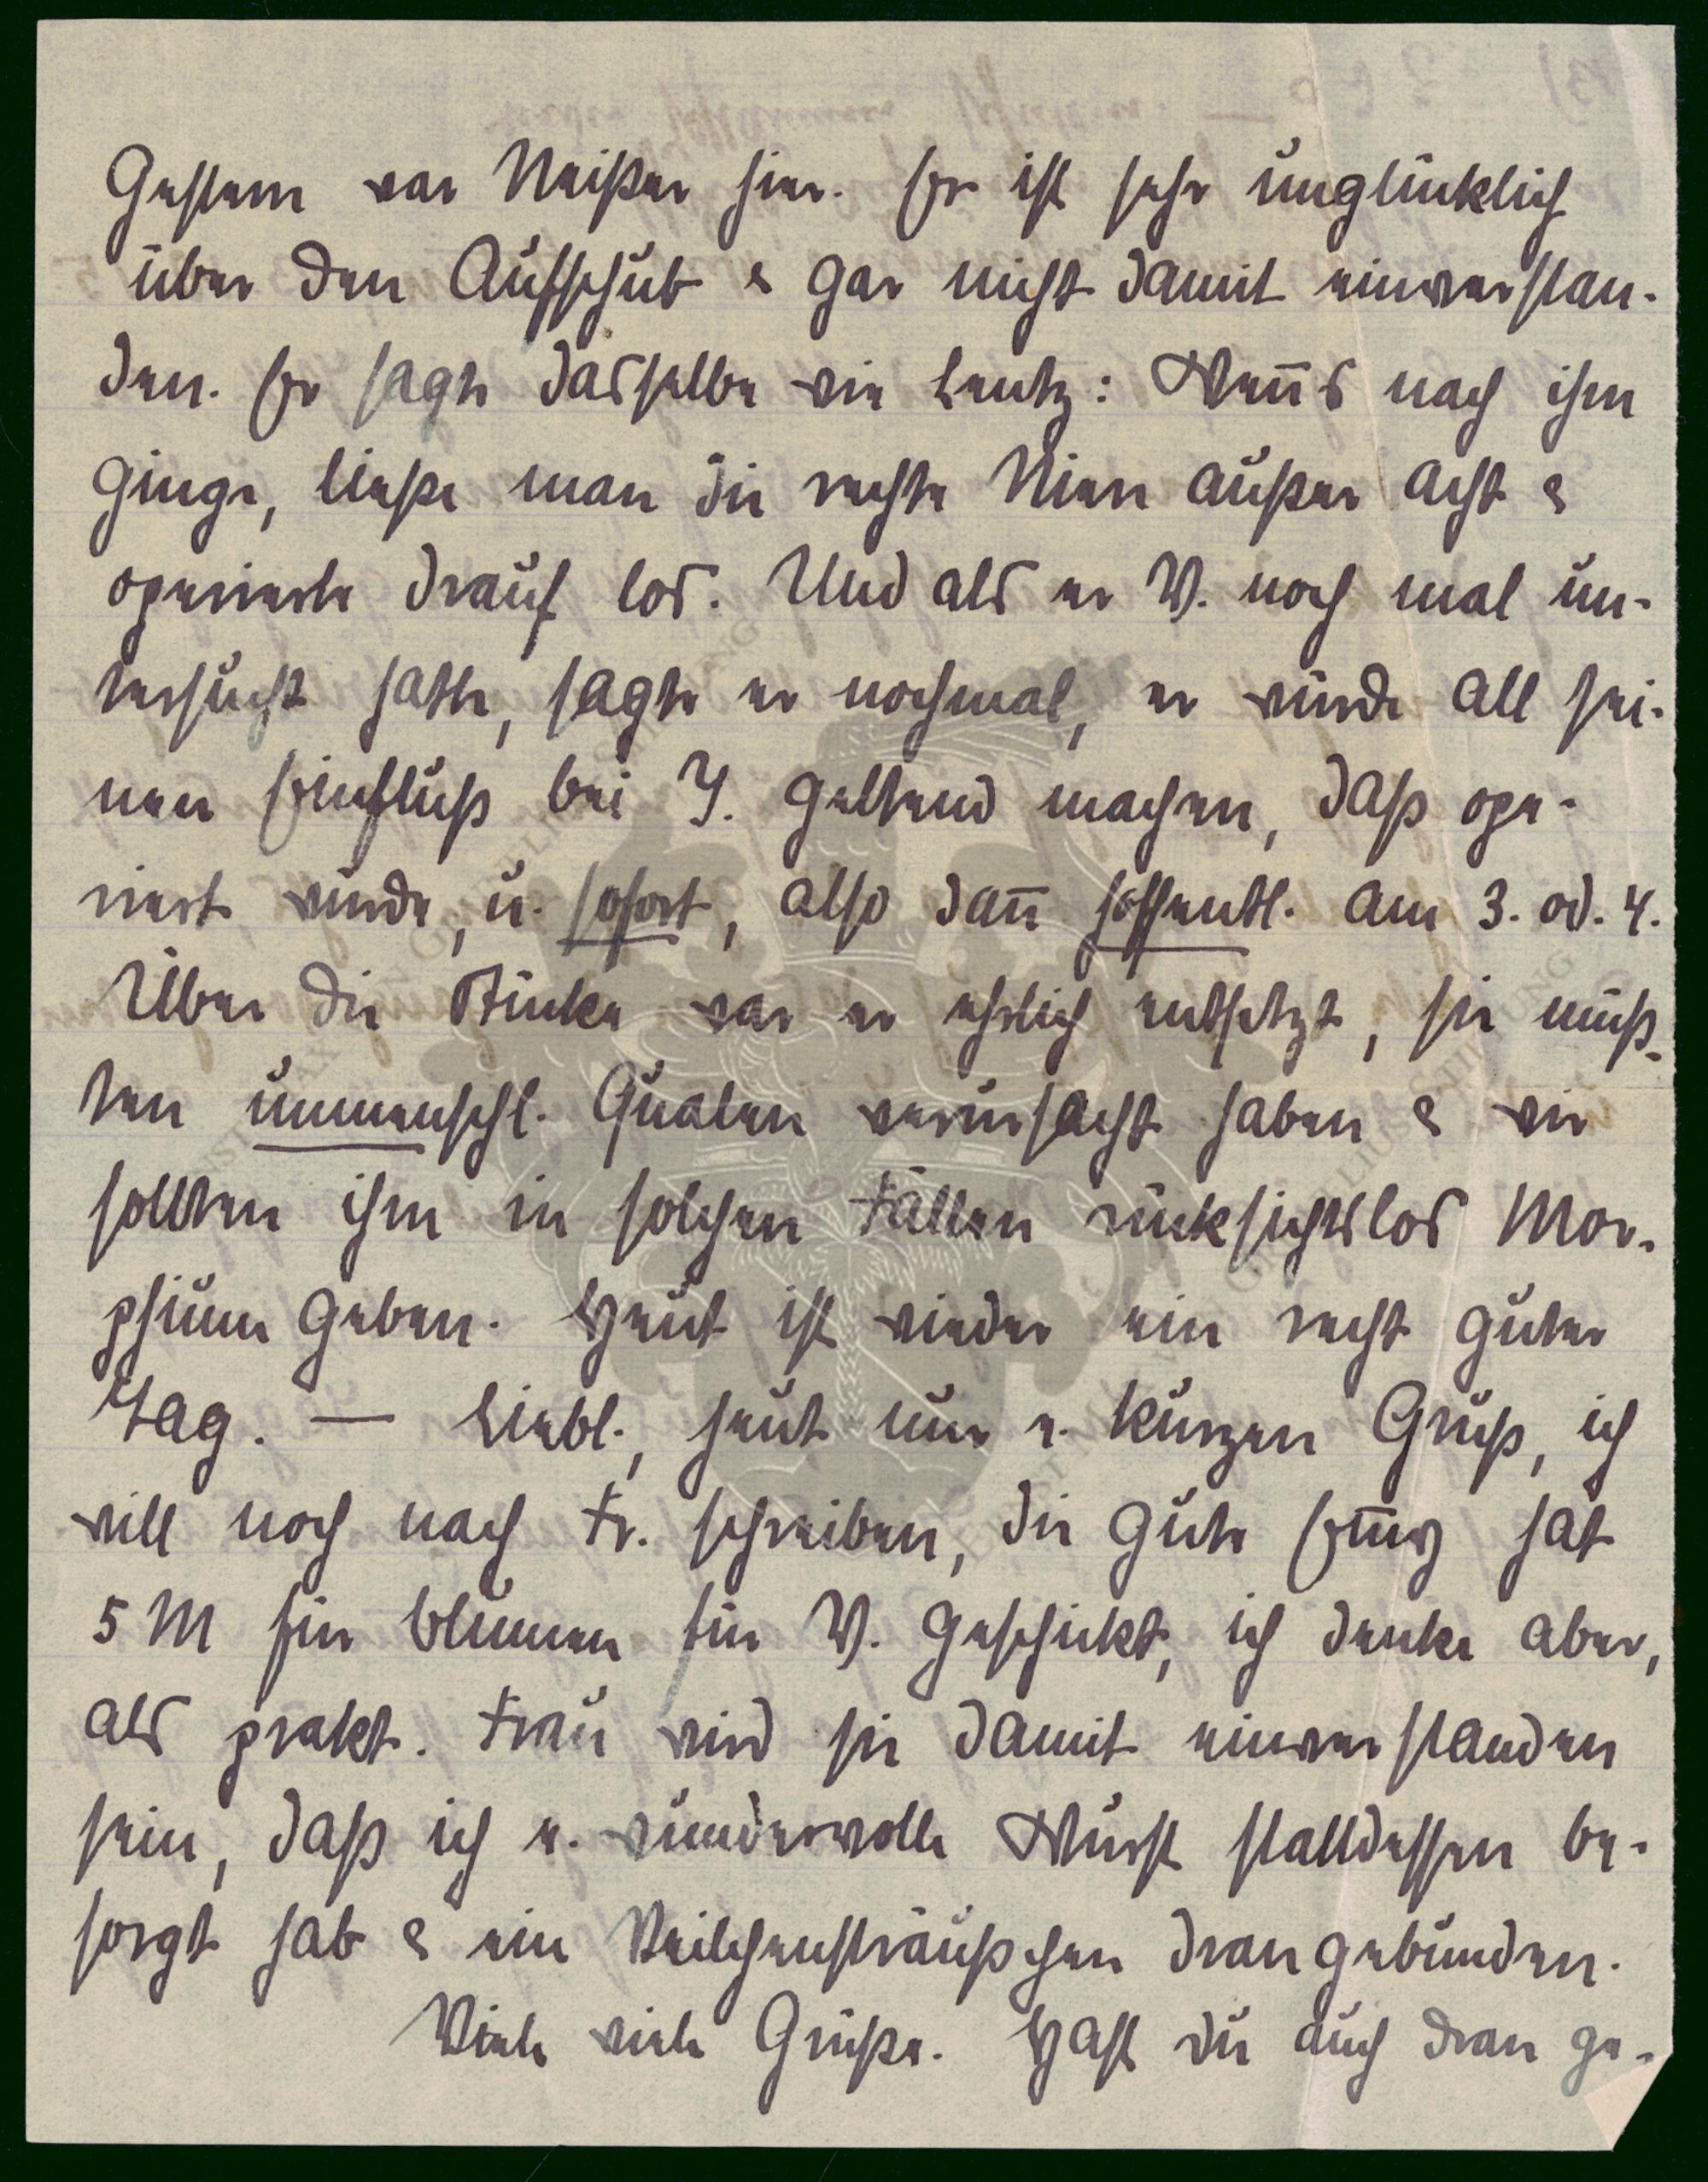 Gestern war Neißer hier. Er ist sehr unglücklich
über den Aufschub & gar nicht damit einverstan-
den. Er sagte dasselbe wie Lentz: Wenn's nach ihm
ginge, ließe man die rechte Niere außer acht &
operierte drauf los. Und als er V. noch mal un-
tersucht hatte, sagte er nochmal, er würde all sei-
nen Einfluß bei J. geltend machen, daß ope-
riert würde, u. sofort, also dann hoffentl. am 3. od. 4.
Über die Stücke war er ehrlich entsetzt, sie müß-
ten unmenschl. Qualen verursacht haben & wir
sollten ihm in solchen Fällen rücksichtslos Mor-
phium geben. Heut ist wieder ein recht guter
Tag. — Liebl., heut nur e. kurzen Gruß, ich
will noch nach Fr. schreiben, die gute Emy hat
5 M für Blumen für V. geschickt, ich denke aber,
als prakt. Frau wird sie damit einverstanden
sein, daß ich e. wundervolle Wurst stattdessen be-
sorgt hab & ein Veilchensträußchen dran gebunden.
Viele viele Grüße. Hast du auch dran ge-